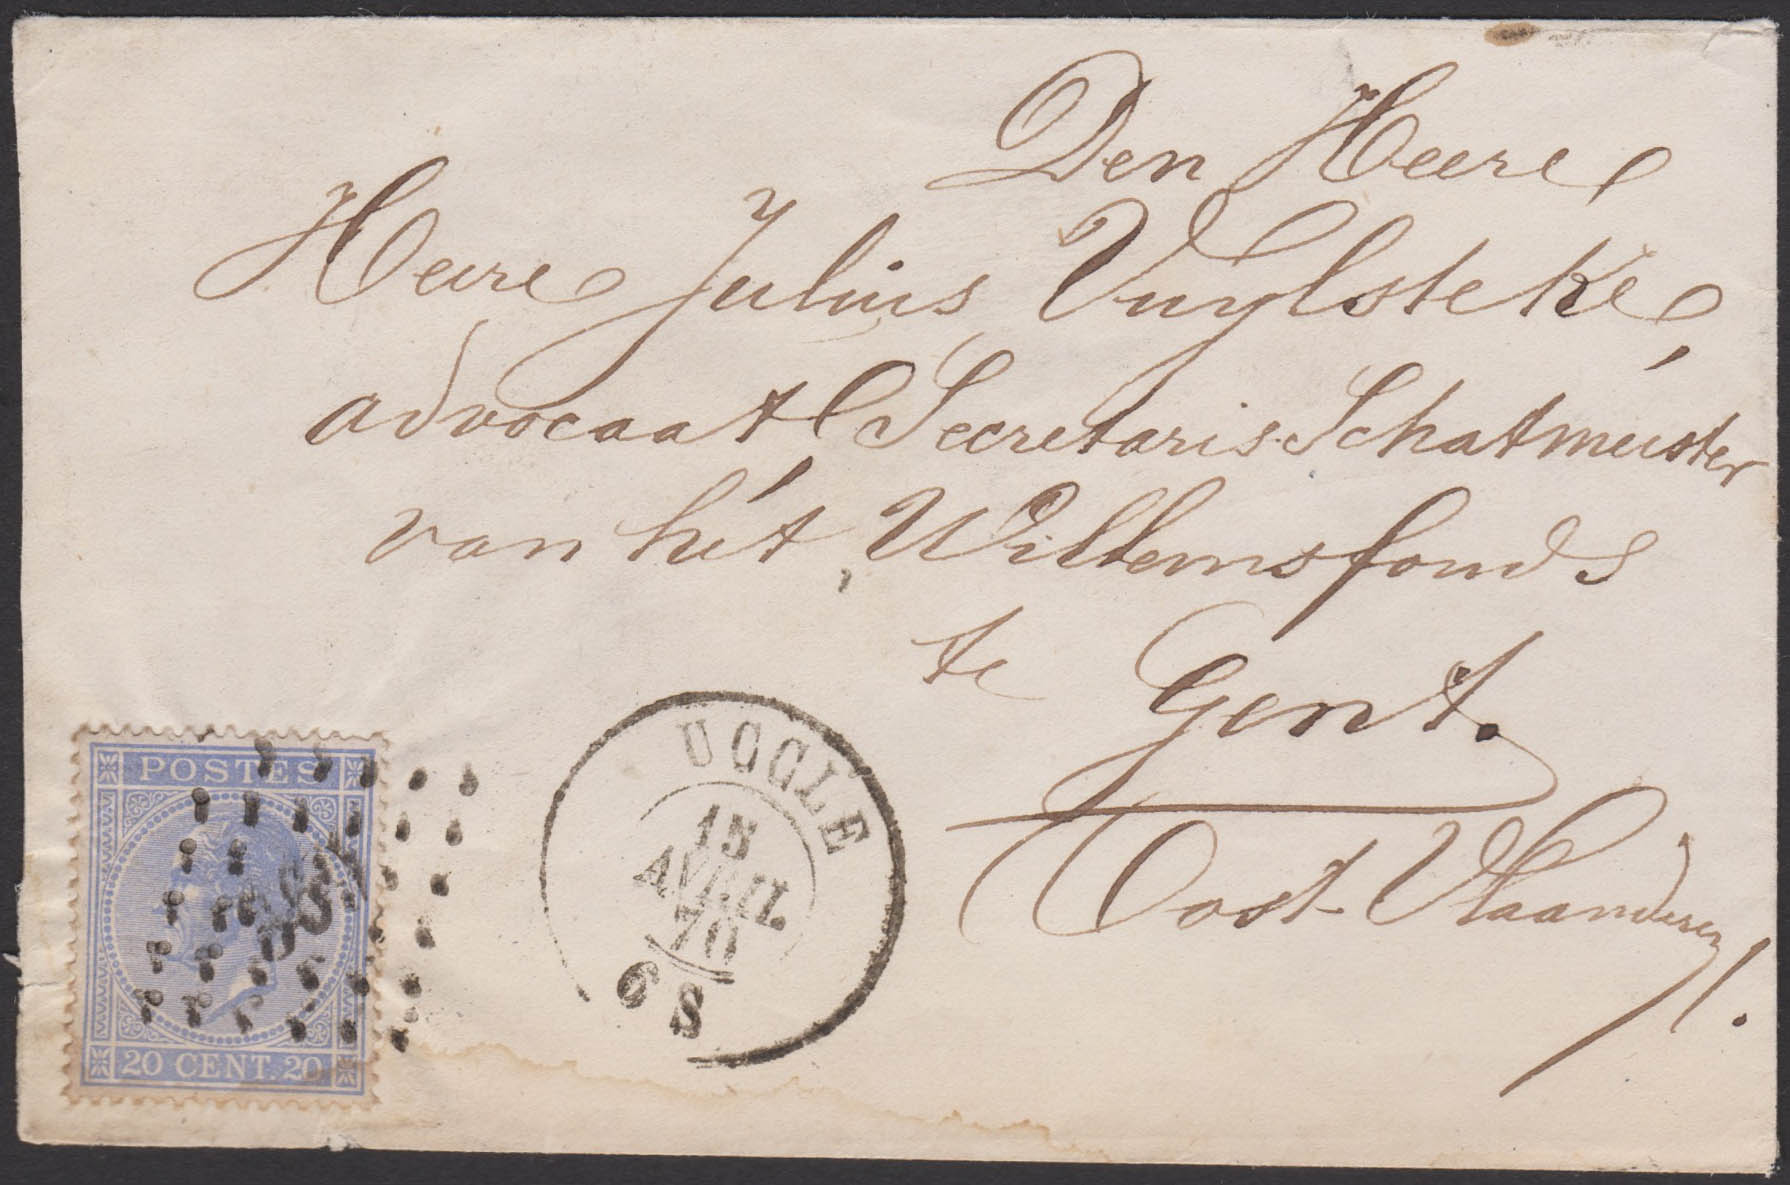 Den Heere
Heere Julius Vuylsteke
advocaat Secretaris Schatmeester
van hét Willemsfonds
te Gent.
Oost-Vlaanderen /.
POSTES
20 CENT. 20
UCCLE
15
AVRIL
70
6 S